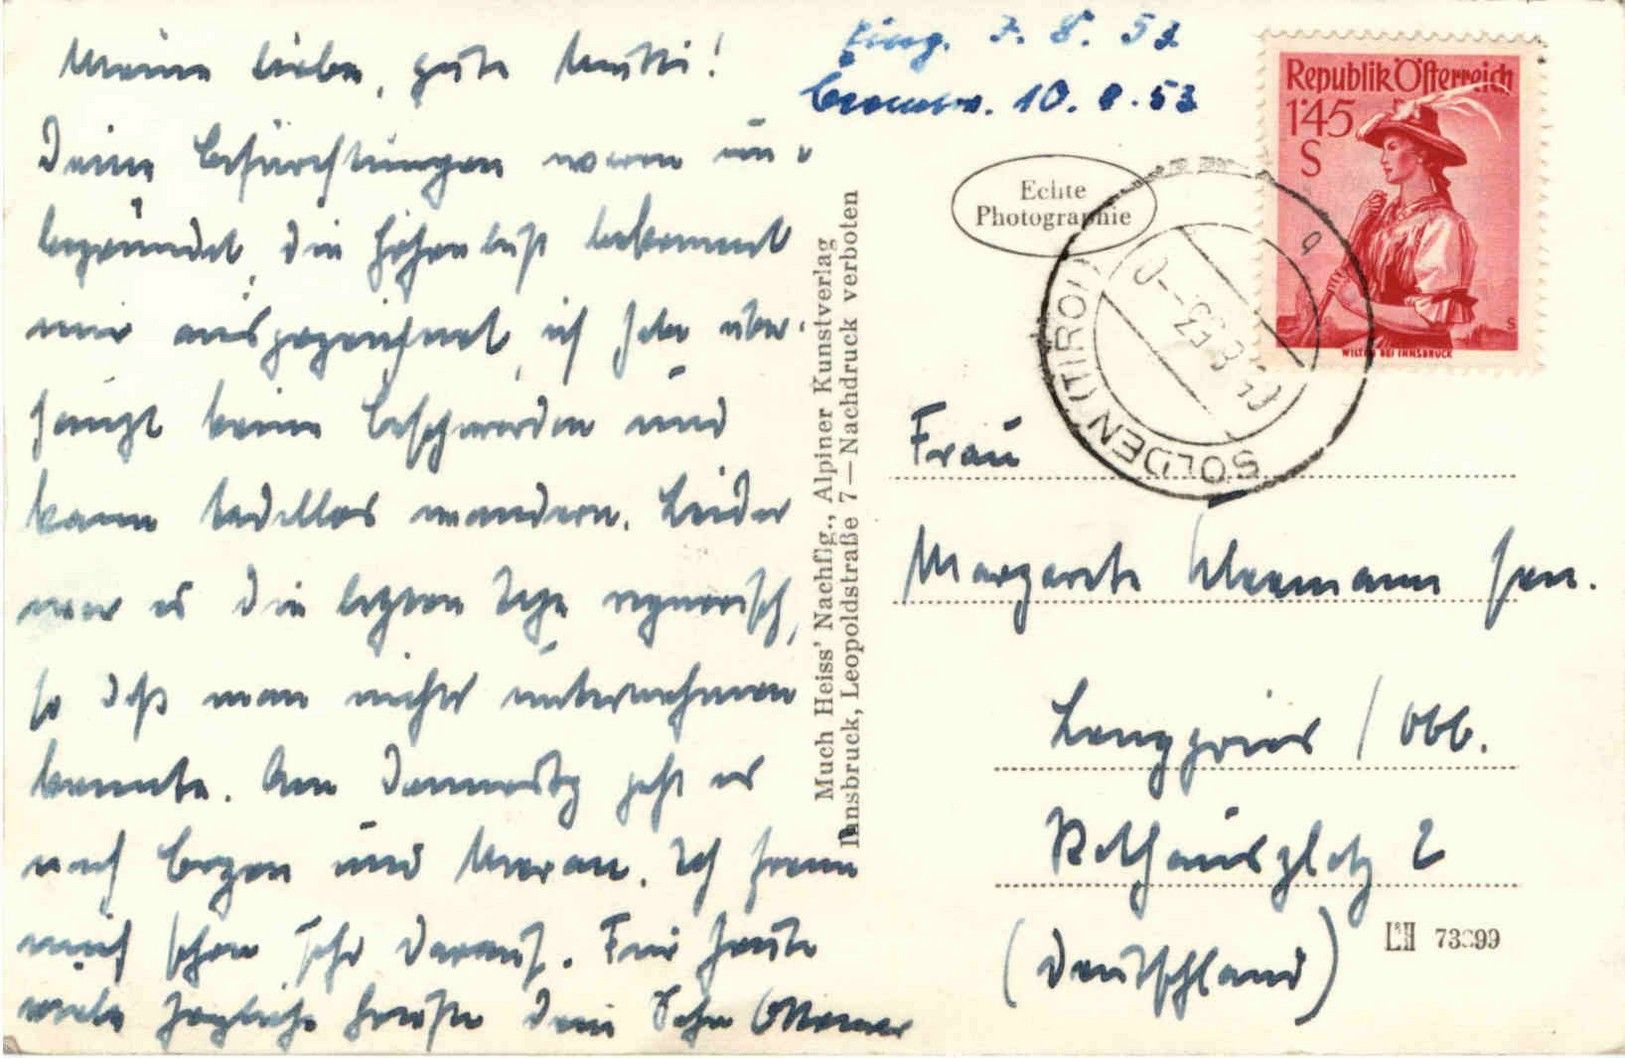 Meine liebe, gute Mutti!
Deine Befürchtungen waren un-
begründet, die Höhenluft bekommt
mir ausgezeichnet, ich habe über-
haupt keine Beschwerden und
kann tadellos wandern. Leider
war es die letzten Tage regnerisch,
so daß man nichts unternehmen
konnte. Am Donnerstg geht es
nach Bozen und Meran. Ich freue
mich schon sehr darauf. Für heute
viele herzliche Grüße Dein Sohn Ottomar
Eing. 7. 8. 53
Beantw. 10. 8. 53
Echte
Photographie
Republik Österreich
1'45
S
WILTEN BEI INNSBRUCK
SÖLDEN (TIROL)
Much Heiss' Nachflg., Alpiner Kunstverlag
Innsbruck, Leopoldstraße 7 — Nachdruck verboten
Frau
Margarete sen.
Lenggries / Obb.
Rathausplatz 2
(Deutschland)